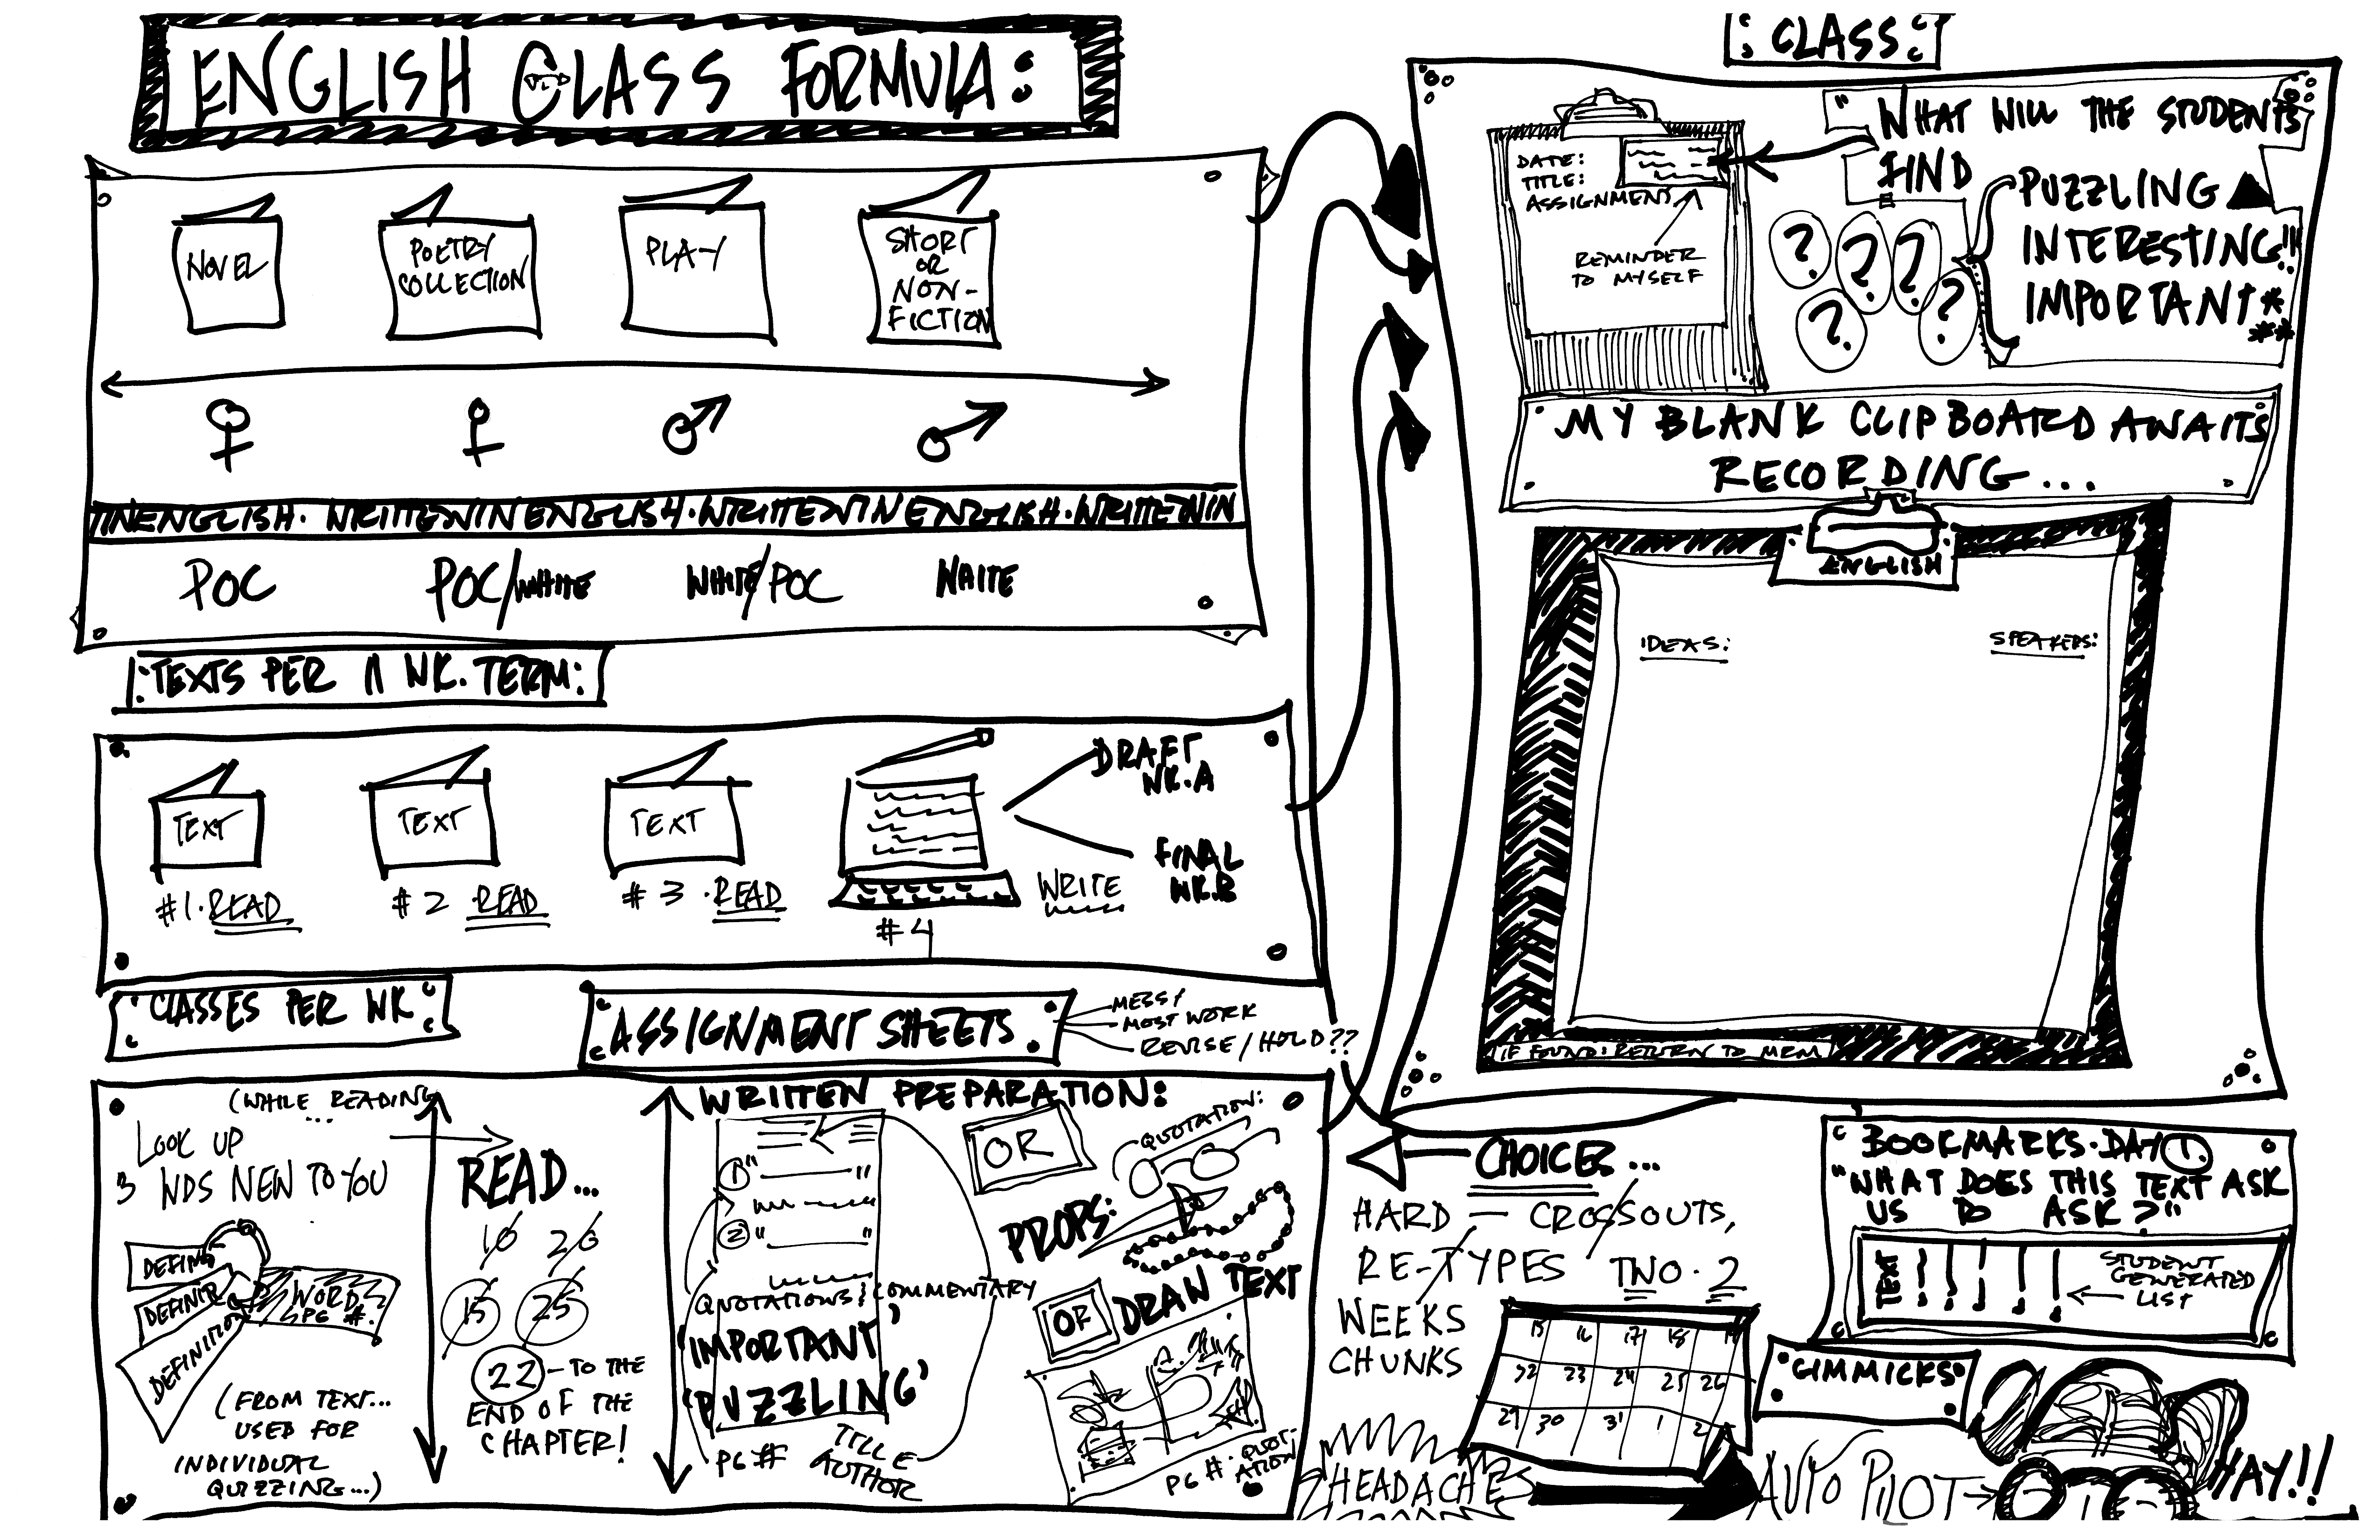 ENGLISH CLASS FORMULA:
NOVEL
POETRY
COLLECTION
PLAY
SHORT
OR
NON-
FICTION
TINENGLISH. WRITTENINENGLISH.WRITTENINENGLISH.WRITTENIN
POC
POC/WHITE
WHITE/POC
WHITE
TEXTS PER 11 WK. TERM:
TEXT
#1.READ
TEXT
#2 .READ
TEXT
#3 .READ
#4
WRITE
DRAFT
WK.A
FINAL
WK.B
CLASSES PER WK
ASSIGNMENT SHEETS.
MESSY
MOST WORK
REVISE/HOLD??
(WHILE READING
...
LOOK UP
3 WDS NEW TO YOU
DEFINI
DEFINIT
DEFINITION
WORD
PG #.
(FROM TEXT...
USED FOR
INDIVIDUAL
QUIZZING...)
READ...
10 20
15 25
22 - TO THE
END OF THE
CHAPTER!
WRITTEN PREPARATION:
1 " "
2 " "
QUOTATIONS & COMMENTARY
'IMPORTANT'
'PUZZLING'
PG # TITLE
AUTHOR
OR
QUOTATION:
PROPS:
OR
DRAW TEXT
PG #. QUOT-
ATION
CLASS:
DATE:
TITLE:
ASSIGNMENT
REMINDER
TO MYSELF
"WHAT WILL THE STUDENTS
FIND
PUZZLING
INTERESTING!!!
IMPORTANT***
? ? ? ? ?
MY BLANK CLIPBOARD AWAITS
RECORDING...
ENGLISH
IDEAS:
SPEAKERS:
IF FOUND: RETURN TO MRM
CHOICES...
HARD - CROSSOUTS,
RE-TYPES TWO.2
WEEKS
CHUNKS
15 16 17 18 19
22 23 24 25 26
29 30 31 1 2
HEADACHES
BOOKMARKS.DAY 1.
"WHAT DOES THIS TEXT ASK
US TO ASK?"
TEXT
STUDENT
GENERATED
LIST
GIMMICKS:
AUTO PILOT
HAY!!